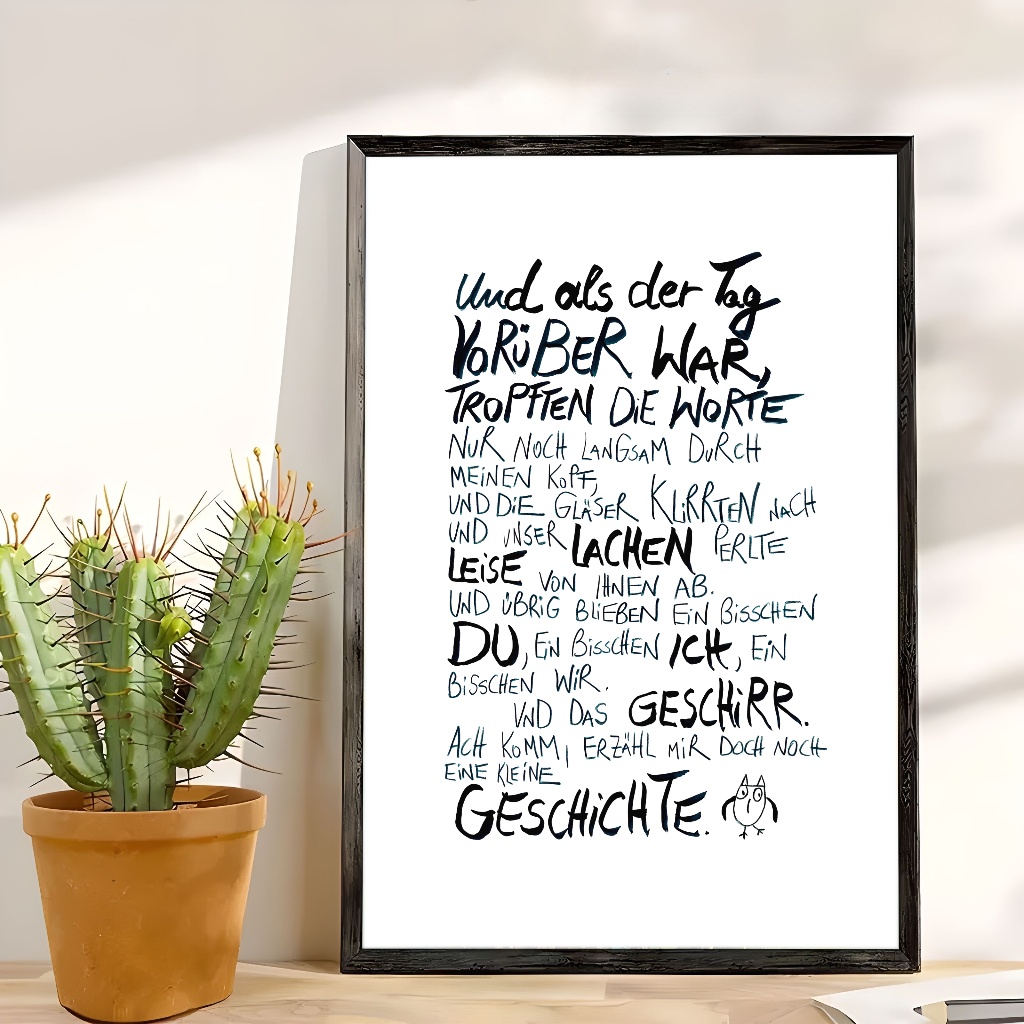 Und als der Tag
VORÜBER WAR,
TROPFTEN DIE WORTE
NUR NOCH LANGSAM DURCH
MEINEN KOPF,
UND DIE GLÄSER KLIRRTEN NACH
UND UNSER LACHEN PERLTE
LEISE VON IHNEN AB.
UND ÜBRIG BLIEBEN EIN BISSCHEN
DU, EIN BISSCHEN ICH, EIN
BISSCHEN WIR.
UND DAS GESCHIRR.
ACH KOMM, ERZÄHL MIR DOCH NOCH
EINE KLEINE
GESCHICHTE.